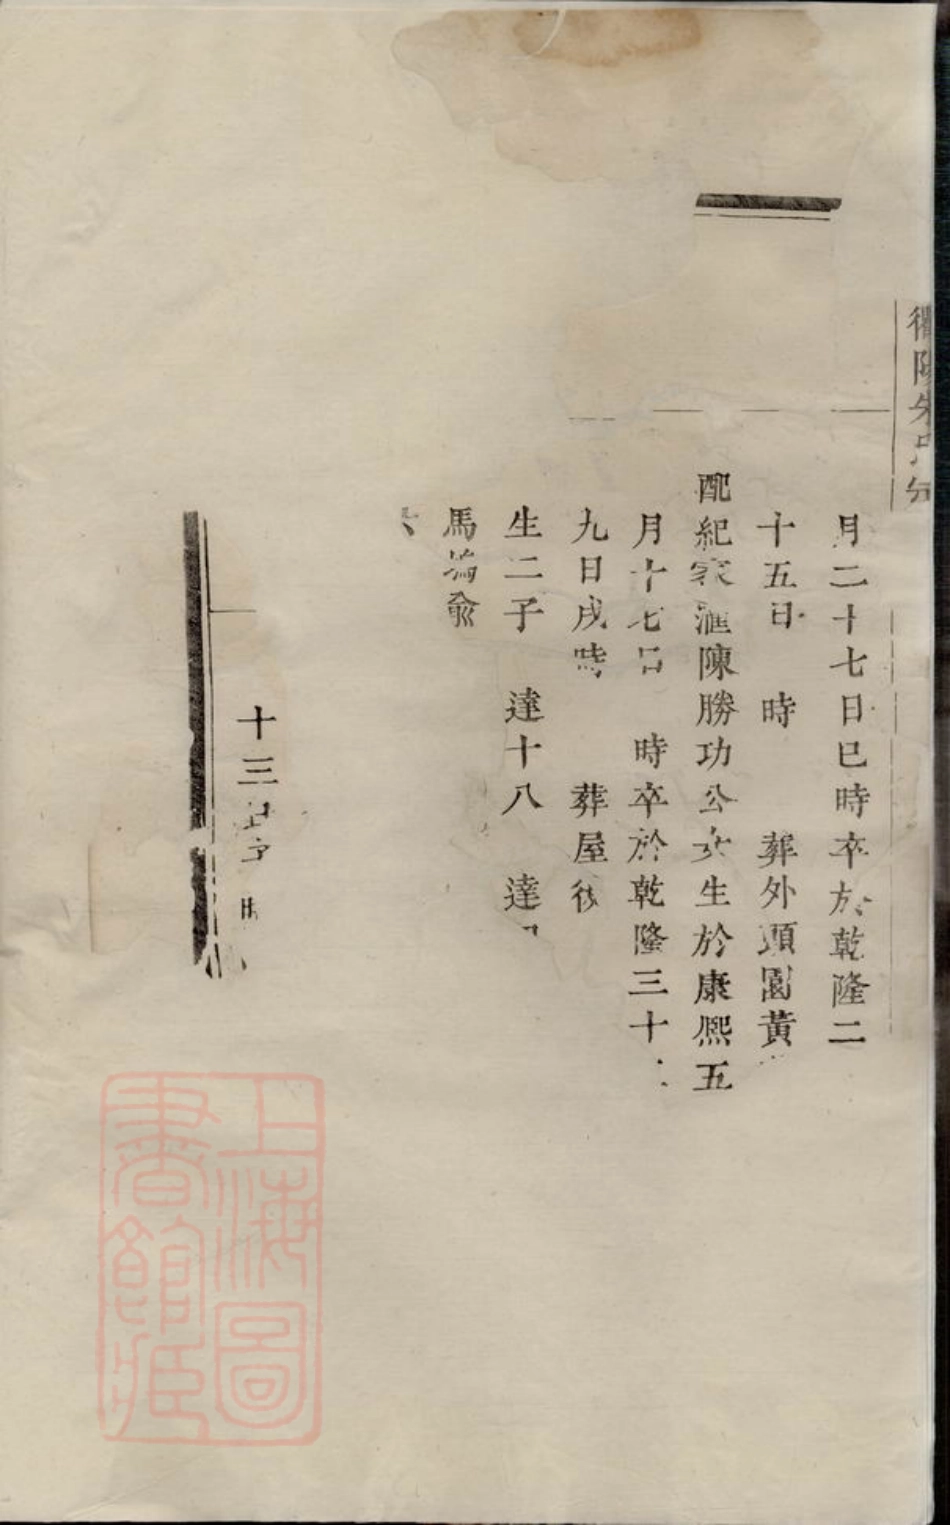 月二十七日巳時卒於乾隆二
十五日 時 葬外頭園黃
配紀家滙陳勝功公女生於康熙五
月十七日 時卒於乾隆三十
九日戌時 葬屋後
生二子 達十八 達
馬 兪
十三
上海圖
書館藏